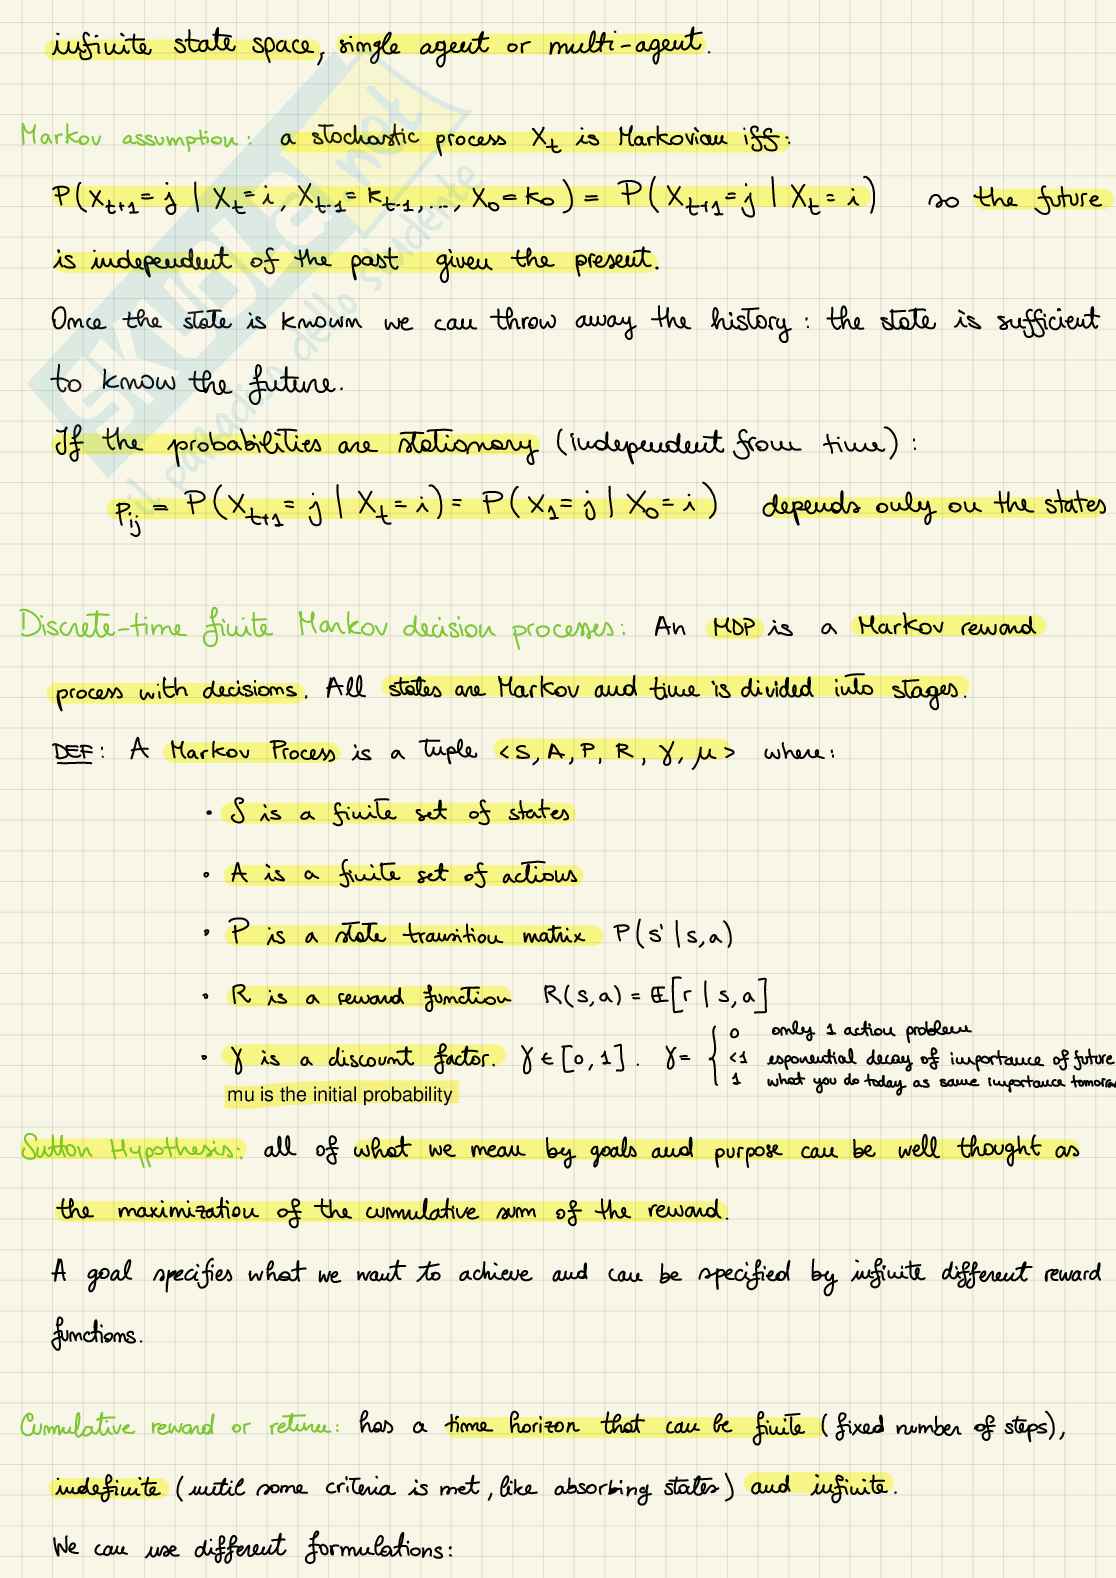 infinite state space, single agent or multi-agent.
Markov assumption: a stochastic process Xt is Markovian iff:
P(Xt+1 = j | Xt = i, Xt-1 = kt-1, ..., X0 = k0) = P(Xt+1 = j | Xt = i) so the future
is independent of the past given the present.
Once the state is known we can throw away the history: the state is sufficient
to know the future.
If the probabilities are stationary (independent from time):
pij = P(Xt+1 = j | Xt = i) = P(X1 = j | X0 = i) depends only on the states
Discrete-time finite Markov decision processes: An MDP is a Markov reward
process with decisions. All states are Markov and time is divided into stages.
DEF: A Markov Process is a tuple <S, A, P, R, γ, μ> where:
• S is a finite set of states
• A is a finite set of actions
• P is a state transition matrix P(s' | s, a)
• R is a reward function R(s, a) = E[r | s, a]
• γ is a discount factor. γ ∈ [0, 1]. γ = { 0 only 1 action problem
<1 esponential decay of importance of future
1 what you do today as same importance tomorrow
mu is the initial probability
Sutton Hypothesis: all of what we mean by goals and purpose can be well thought as
the maximization of the cumulative sum of the reward.
A goal specifies what we want to achieve and can be specified by infinite different reward
functions.
Cumulative reward or return: has a time horizon that can be finite (fixed number of steps),
indefinite (until some criteria is met, like absorbing states) and infinite.
We can use different formulations:
SKUOLA.net
il paradiso dello studente